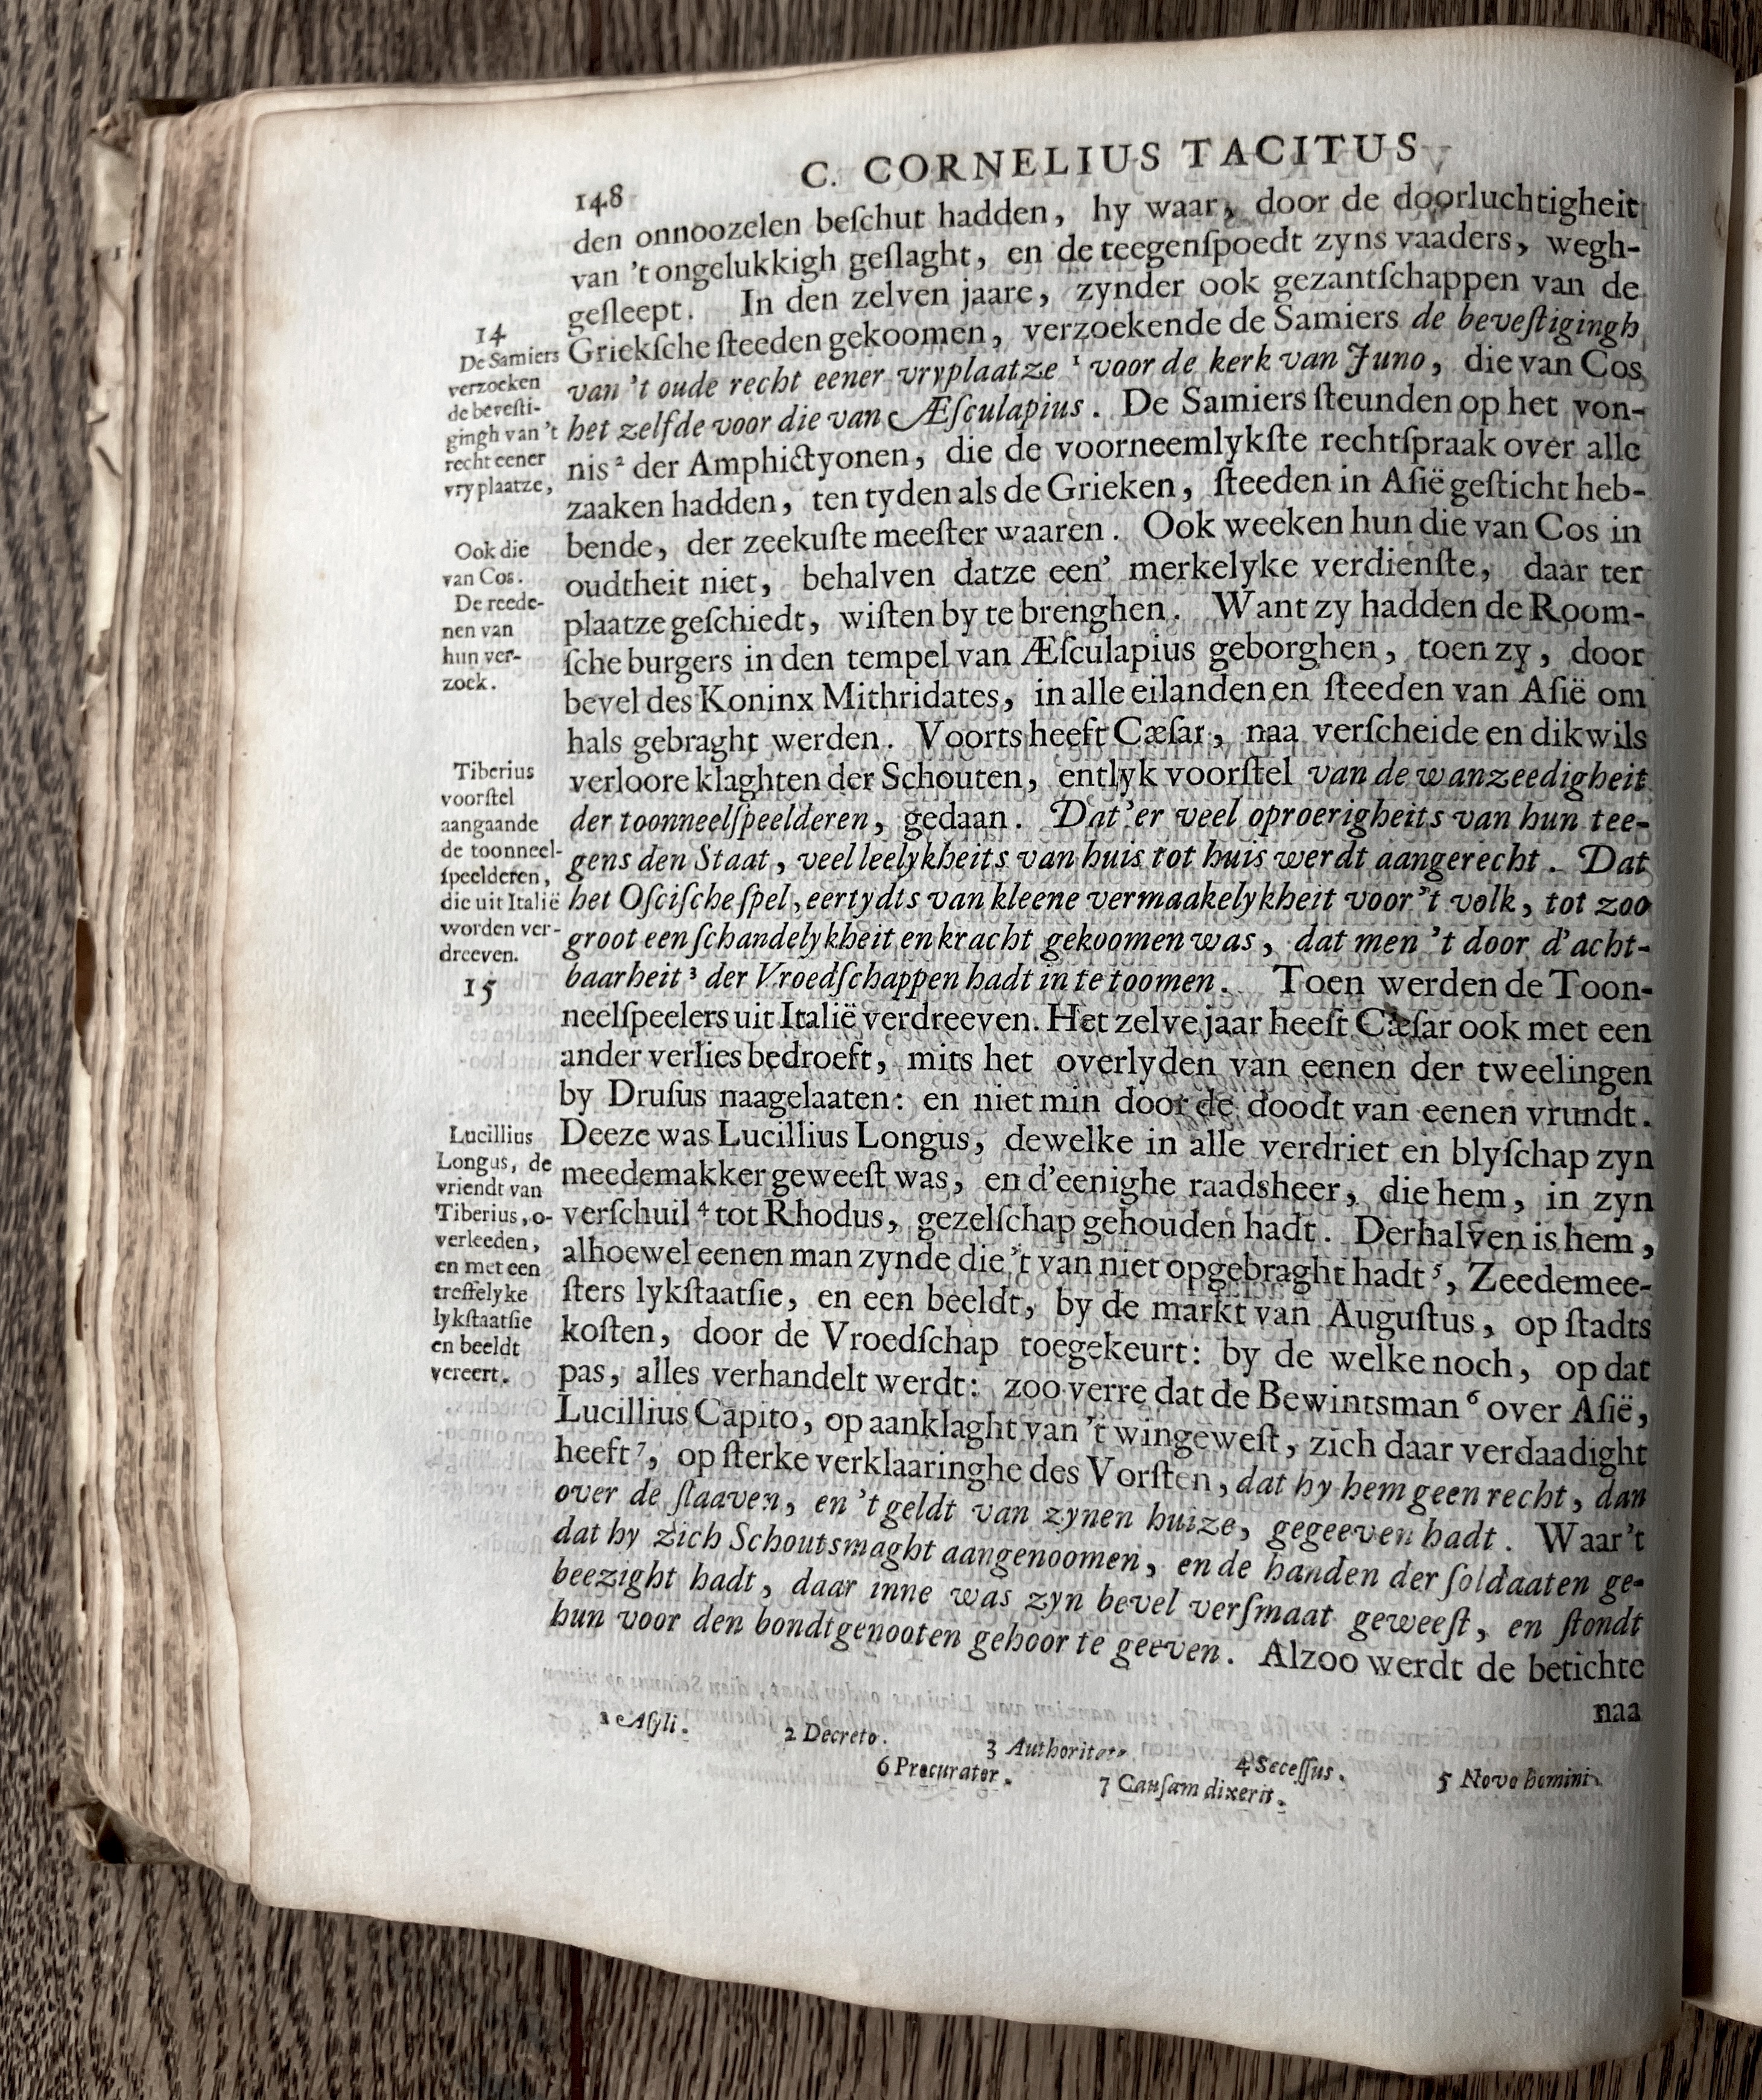 C. CORNELIUS TACITUS
148
den onnoozelen beſchut hadden, hy waar, door de doorluchtigheit
van 't ongelukkigh geſlaght, en de teegenſpoedt zyns vaaders, wegh-
geſleept. In den zelven jaare, zynder ook gezantſchappen van de
Griekſche ſteeden gekoomen, verzoekende de Samiers de beveſtigingh
van 't oude recht eener vryplaatze ¹ voor de kerk van Juno, die van Cos
het zelfde voor die van Æſculapius. De Samiers ſteunden op het von-
nis ² der Amphictyonen, die de voorneemlykſte rechtſpraak over alle
zaaken hadden, ten tyden als de Grieken, ſteeden in Aſië geſticht heb-
bende, der zeekuſte meeſter waaren. Ook weeken hun die van Cos in
oudtheit niet, behalven datze een' merkelyke verdienſte, daar ter
plaatze geſchiedt, wiſten by te brenghen. Want zy hadden de Room-
ſche burgers in den tempel van Æſculapius geborghen, toen zy, door
bevel des Koninx Mithridates, in alle eilanden en ſteeden van Aſië om
hals gebraght werden. Voorts heeft Cæſar, naa verſcheide en dikwils
verloore klaghten der Schouten, entlyk voorſtel van de wanzeedigheit
der toonneelſpeelderen, gedaan. Dat'er veel oproerigheits van hun tee-
gens den Staat, veel leelykheits van huis tot huis werdt aangerecht. Dat
het Oſciſche ſpel, eertydts van kleene vermaakelykheit voor 't volk, tot zoo
groot een ſchandelykheit en kracht gekoomen was, dat men 't door d'acht-
baarheit ³ der Vroedſchappen hadt in te toomen. Toen werden de Toon-
neelſpeelers uit Italië verdreeven. Het zelve jaar heeft Cæſar ook met een
ander verlies bedroeft, mits het overlyden van eenen der tweelingen
by Druſus naagelaaten: en niet min door de doodt van eenen vrundt.
Deeze was Lucillius Longus, dewelke in alle verdriet en blyſchap zyn
meedemakker geweeſt was, en d'eenighe raadsheer, die hem, in zyn
verſchuil ⁴ tot Rhodus, gezelſchap gehouden hadt. Derhalven is hem,
alhoewel eenen man zynde die 't van niet opgebraght hadt ⁵, Zeedemee-
ſters lykſtaatſie, en een beeldt, by de markt van Auguſtus, op ſtadts
koſten, door de Vroedſchap toegekeurt: by de welke noch, op dat
pas, alles verhandelt werdt: zoo verre dat de Bewintsman ⁶ over Aſië,
Lucillius Capito, op aanklaght van 't wingeweſt, zich daar verdaadight
heeft ⁷, op ſterke verklaaringhe des Vorſten, dat hy hem geen recht, dan
over de ſlaaven, en 't geldt van zynen huize, gegeeven hadt. Waar't
dat hy zich Schoutsmaght aangenoomen, en de handen der ſoldaaten ge-
beezight hadt, daar inne was zyn bevel verſmaat geweeſt, en ſtondt
hun voor den bondtgenooten gehoor te geeven. Alzoo werdt de betichte
naa
14
De Samiers
verzoeken
de beveſti-
gingh van 't
recht eener
vryplaatze,
Ook die
van Cos.
De reede-
nen van
hun ver-
zoek.
Tiberius
voorſtel
aangaande
de toonneel-
ſpeelderen,
die uit Italië
worden ver-
dreeven.
15
Lucillius
Longus, de
vriendt van
Tiberius, o-
verleeden,
en met een
treffelyke
lykſtaatſie
en beeldt
vereert.
1 Aſyli.
2 Decreto.
3 Authoritate
4 Seceſſus.
5 Novo homini.
6 Procurator.
7 Cauſam dixerit.